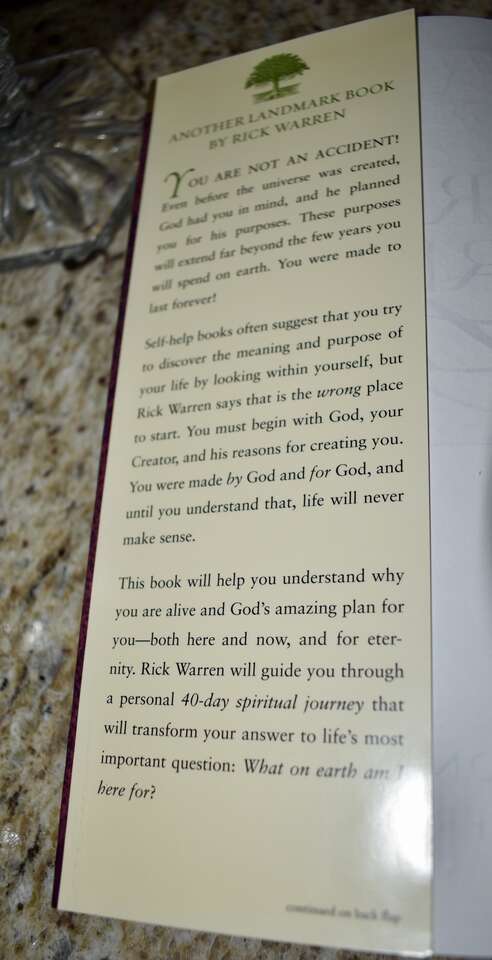 ANOTHER LANDMARK BOOK
BY RICK WARREN
YOU ARE NOT AN ACCIDENT!
Even before the universe was created,
God had you in mind, and he planned
you for his purposes. These purposes
will extend far beyond the few years you
will spend on earth. You were made to
last forever!
Self-help books often suggest that you try
to discover the meaning and purpose of
your life by looking within yourself, but
Rick Warren says that is the wrong place
to start. You must begin with God, your
Creator, and his reasons for creating you.
You were made by God and for God, and
until you understand that, life will never
make sense.
This book will help you understand why
you are alive and God's amazing plan for
you—both here and now, and for eter-
nity. Rick Warren will guide you through
a personal 40-day spiritual journey that
will transform your answer to life's most
important question: What on earth am I
here for?
continued on back flap